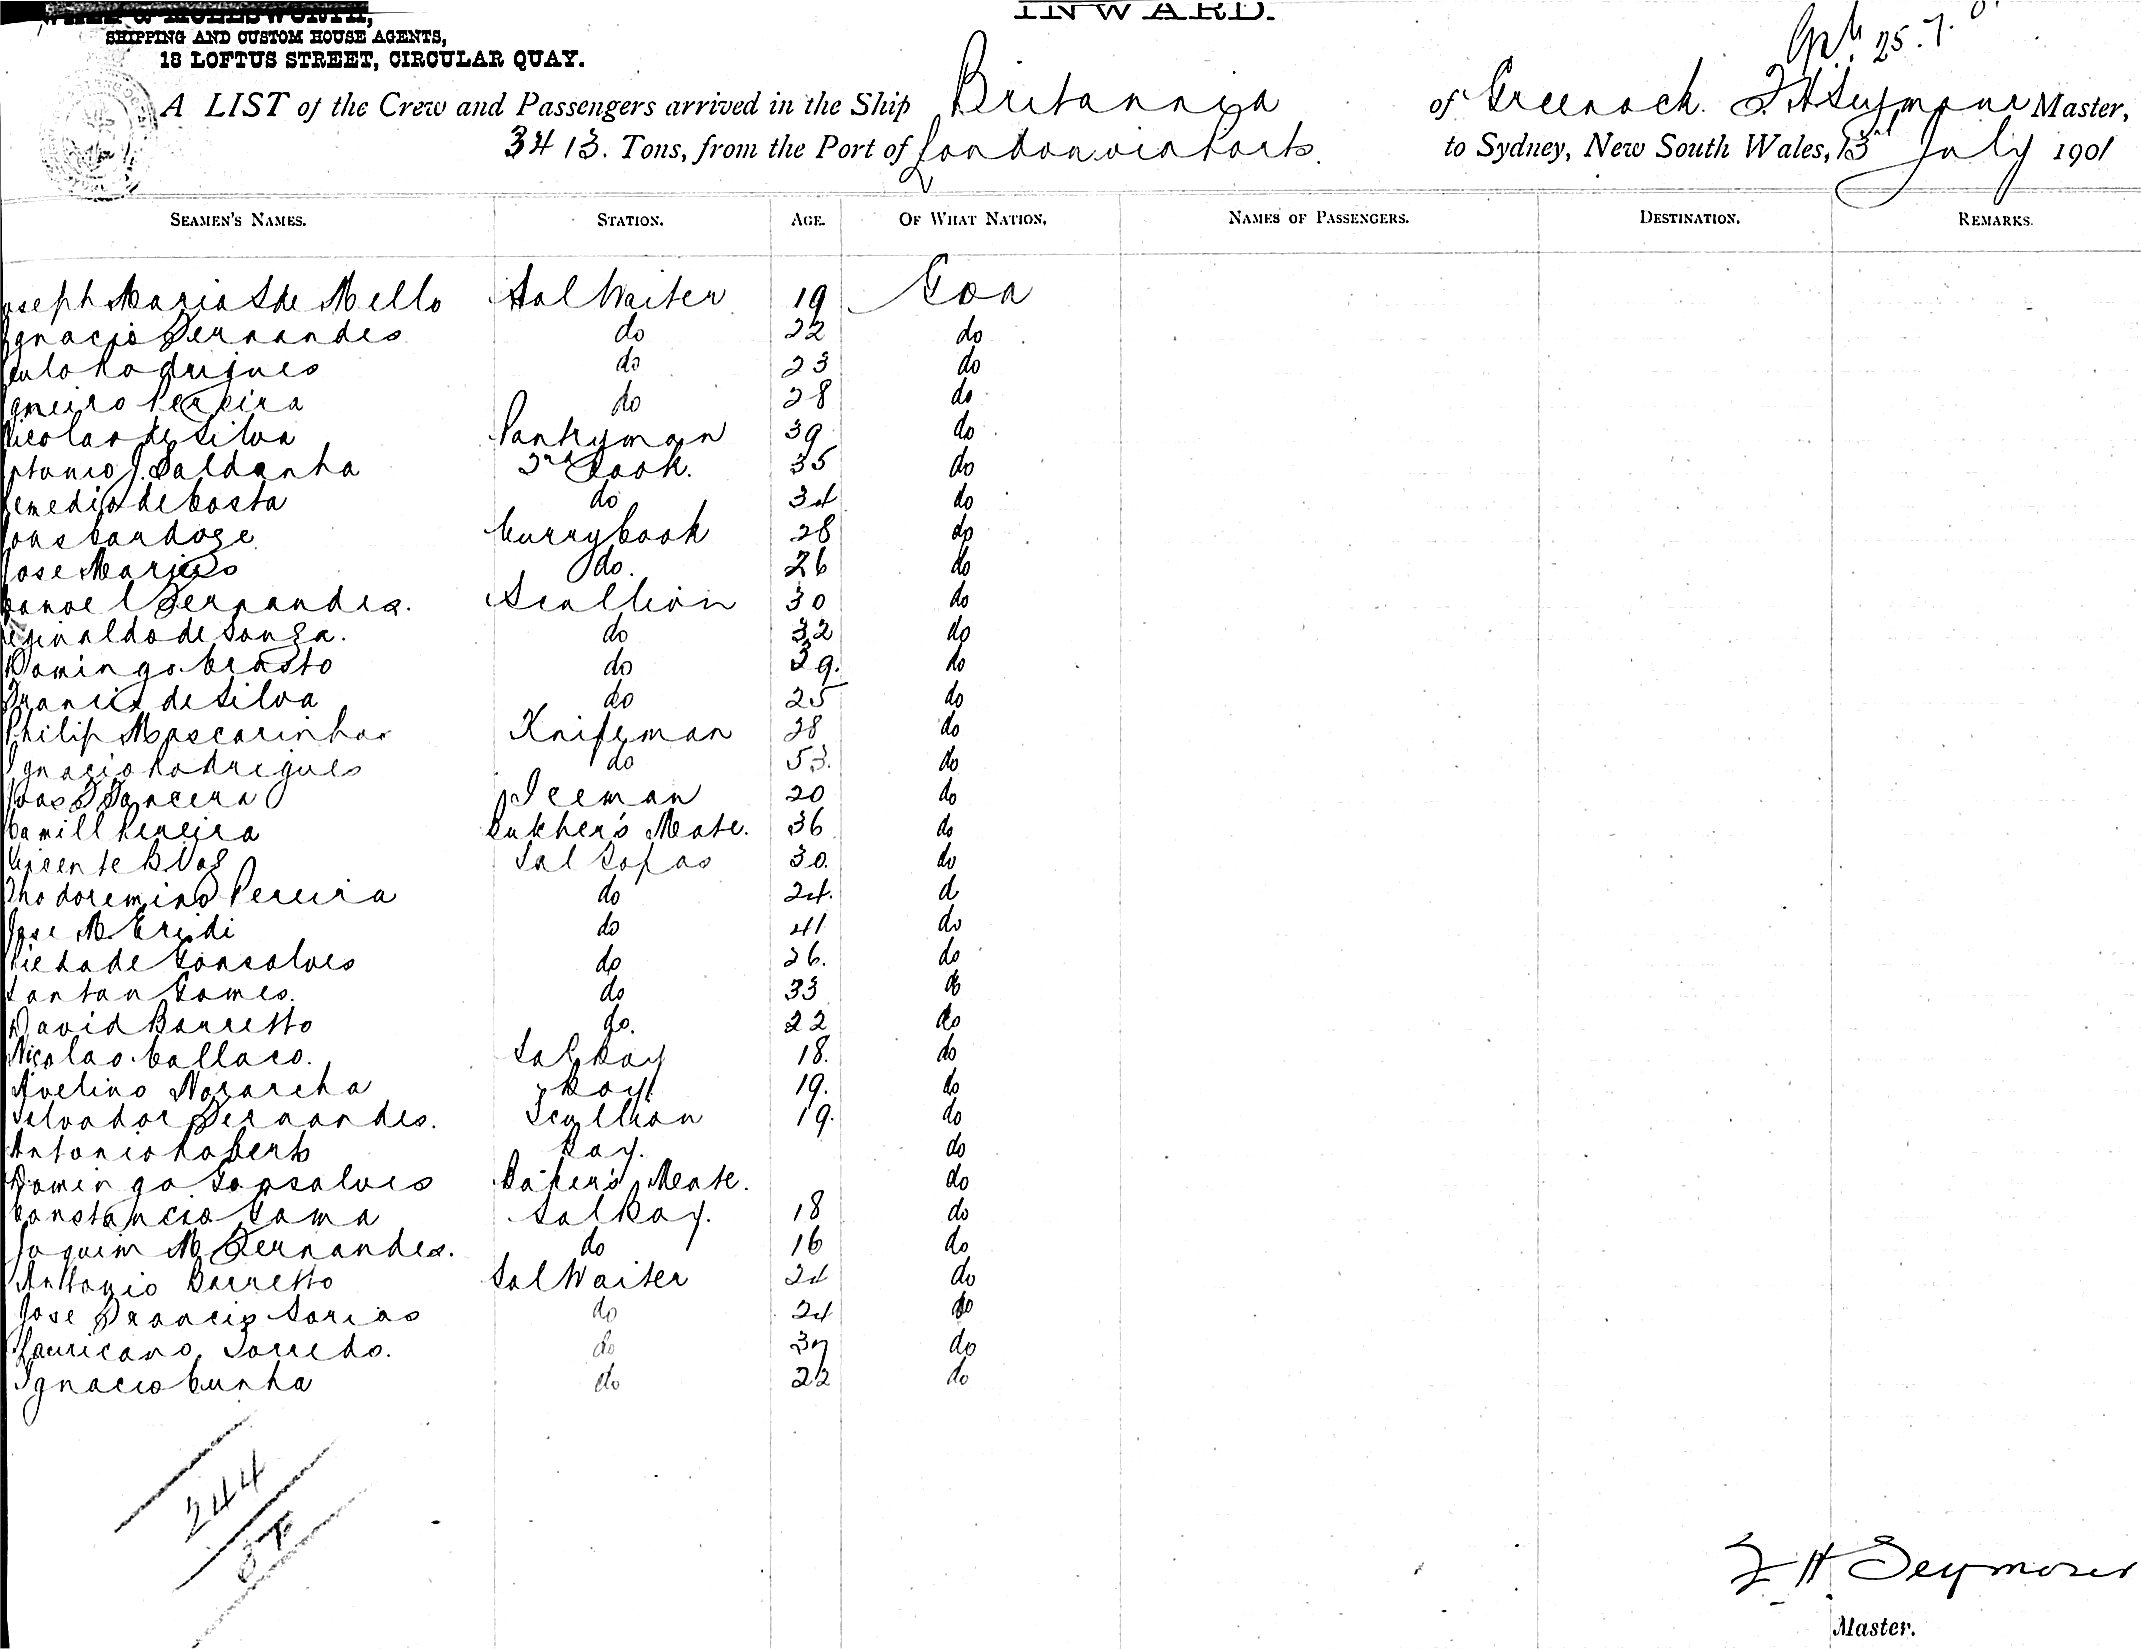 INWARD.
SHIPPING AND CUSTOM HOUSE AGENTS,
18 LOFTUS STREET, CIRCULAR QUAY.
25.7.
A LIST of the Crew and Passengers arrived in the Ship Britannia of Greenock. F H Seymour Master,
3413. Tons, from the Port of London via Ports. to Sydney, New South Wales, 13 July 1901
SEAMEN'S NAMES. STATION. AGE. OF WHAT NATION. NAMES OF PASSENGERS. DESTINATION. REMARKS.
oseph Maria S de Mello Sal Waiter 19 Goa
Ignacio Fernandes do 22 do
aulo Rodrigues do 23 do
Pereira do 28 do
Nicolao de Silva Pantryman 39 do
ntonio J. Saldanha Cook. 35 do
enedid de Costa do 34 do
Joas Cardoze Curry Cook 28 do
Jose Do. 26 do
anoel Fernandes. Scullion 30 do
eginaldo de Souza. do 32 do
Domingo Crasto do 39. do
Francis de Silva do 25 do
Philip Mascarinhas Knifeman 28 do
Ignacio Rodrigues do 53. do
Joas Iceman 20 do
Camill Pereira Butcher's Mate. 36 do
Vicente B Vaz Sal Topas 30. do
Thodoremino Pereira do 24. d
Jose M do 41 do
Piedade Gonsalves do 26. do
Santan Gomes. do 33 do
David Barretto do. 22 do
Nicolao Collaco. Sal Boy 18. do
Avelino Boy 19. do
Salvador Fernandes. Scullion 19. do
Antonio Roberts Boy. do
Domingo Gonsalves Baker's Mate. do
Constancio Gama Sal Boy. 18 do
Joquim M Fernandes. do 16 do
Antonio Barretto Sal Waiter 24 do
Jose Francis do 24 do
do 37 do
Ignacio Cunha do 22 do
244
F H Seymour
Master.